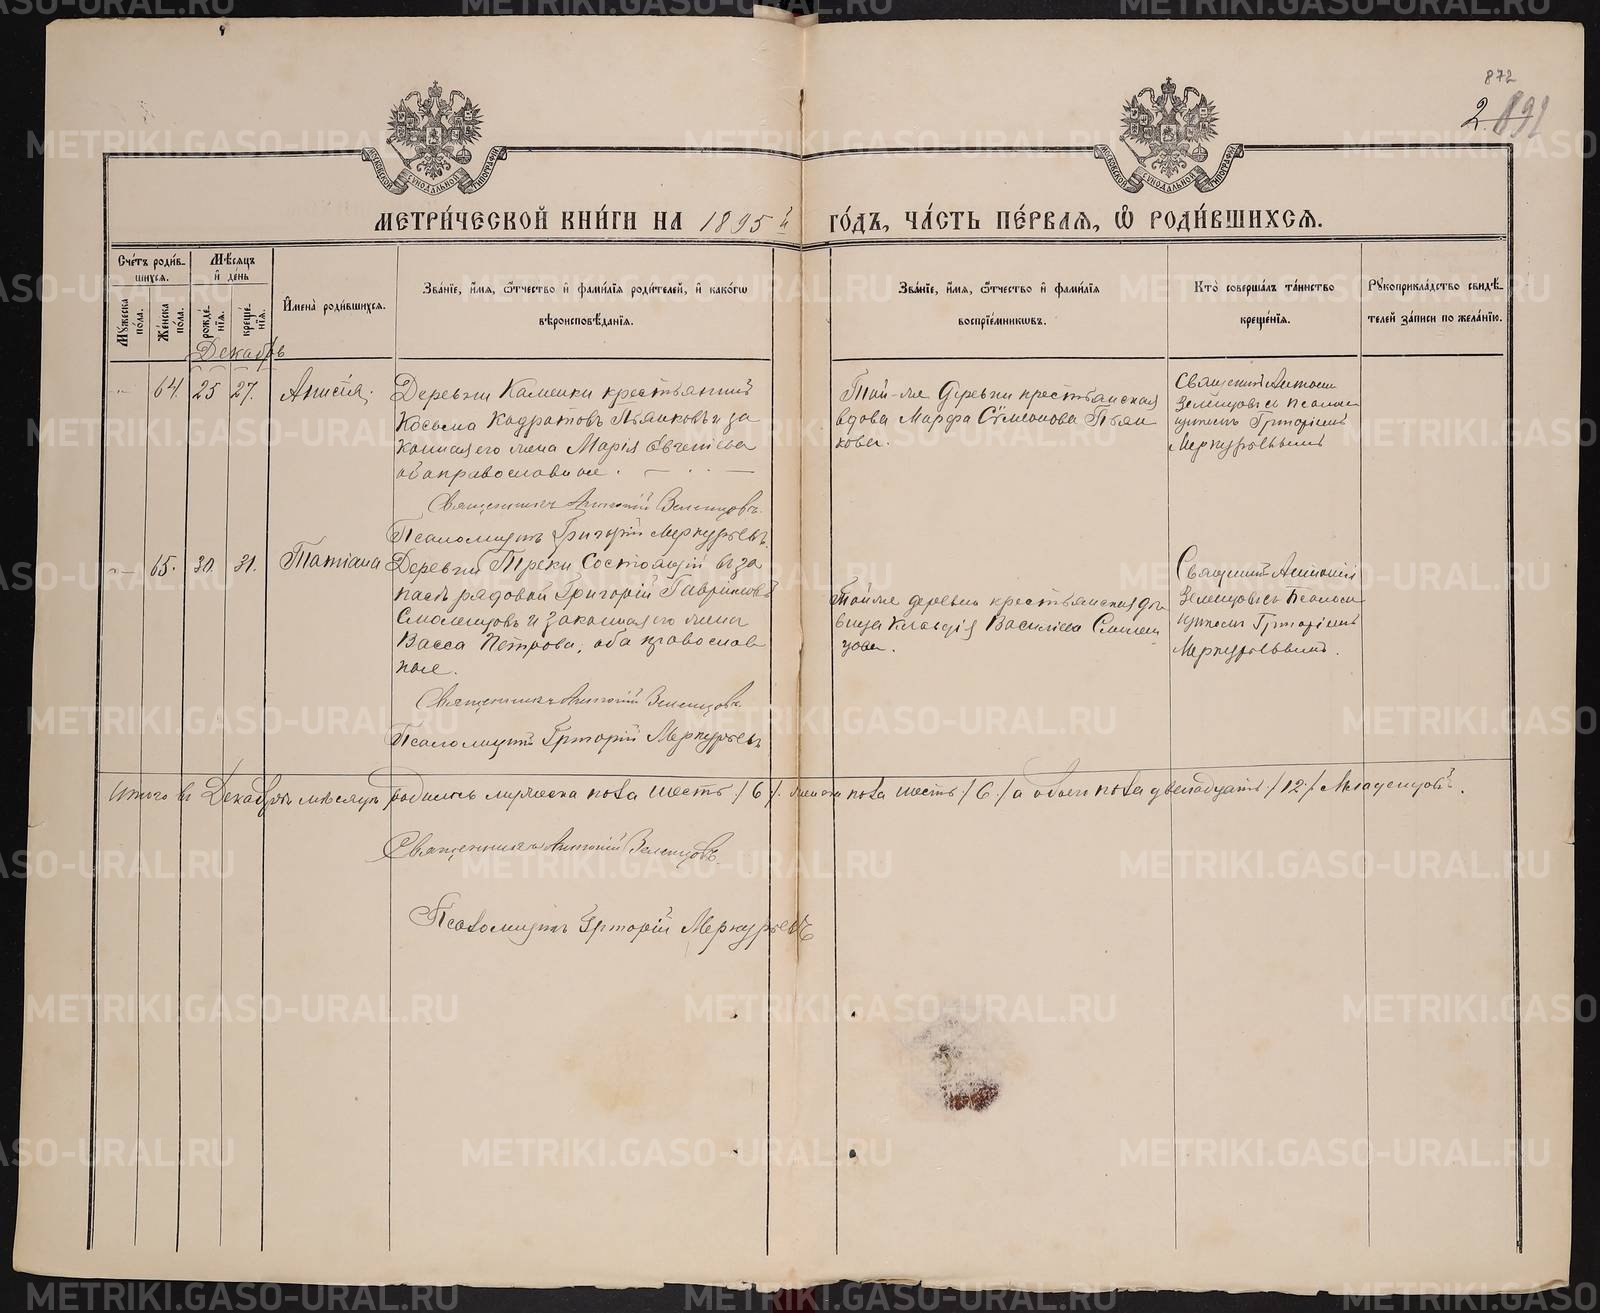 872
2. 891
МОСКОВСКОЙ СѴНОДАЛЬНОЙ ТИПОГРАФІИ
МОСКОВСКОЙ СѴНОДАЛЬНОЙ ТИПОГРАФІИ
МЕТРИ́ЧЕСКОЙ КНИ́ГИ НА 1895 й ГО́ДЪ, ЧА́СТЬ ПЕ́РВАѦ, Ѡ҆ РОДИ́ВШИХСѦ.
Сче́тъ роди́вшихсѧ.
Мѹжеска по́ла.
Же́нска по́ла.
Мѣ́сѧцъ и҆ де́нь
рожде́нїѧ.
креще́нїѧ.
И҆мена̀ роди́вшихсѧ.
Зва́нїе, и҆́мѧ, ѻ҆́тчество и҆ фами́лїѧ роди́телей, и҆ како́гѡ
вѣроисповѣ́данїѧ.
Зва́нїе, и҆́мѧ, ѻ҆́тчество и҆ фами́лїѧ
воспрїе́мникѡвъ.
Кто̀ соверша́лъ та́инство
креще́нїѧ.
Рѹкоприкла́дство свидѣ́телей за́писи по жела́нїю.
Декабрь
64. 25 27. Анисія.
Деревни Каменки крестьянинъ
Косьма Кодратовъ Пьянковъ и за
конная его жена Марія Евгеніева
оба православные.
Священникъ Антоній Зеленцовъ.
Псаломщикъ Григорій Меркурьевъ.
Той-же деревни крестьянская
вдова Марфа Сѵмеонова Пьян
кова.
Священник Антоній
Зеленцовъ съ псалом
щикомъ Григоріемъ
Меркурьевымъ
65. 30. 31. Татіана
Деревни Треки Состоящій въ за
пасѣ рядовой Григорій Гавриловъ
Смоленцовъ и законная его жена
Васса Петрова, оба православ
ные.
Священникъ Антоній Зеленцовъ.
Псаломщикъ Григорій Меркурьевъ
Той же деревни крестьянская дѣ
вица Клавдія Василіева Смолен
цова.
Священник Антоній
Зеленцовъ съ Псалом
щикомъ Григоріемъ
Меркурьевымъ.
Итого въ Декабрѣ мѣсяцѣ родилось мужеска пола шесть /6/. женска пола шесть /6/ а обоего пола двенадцать /12/ младенцовъ.
Священникъ Антоній Зеленцовъ.
Псаломщикъ Григорій Меркурьевъ
METRIKI.GASO-URAL.RU